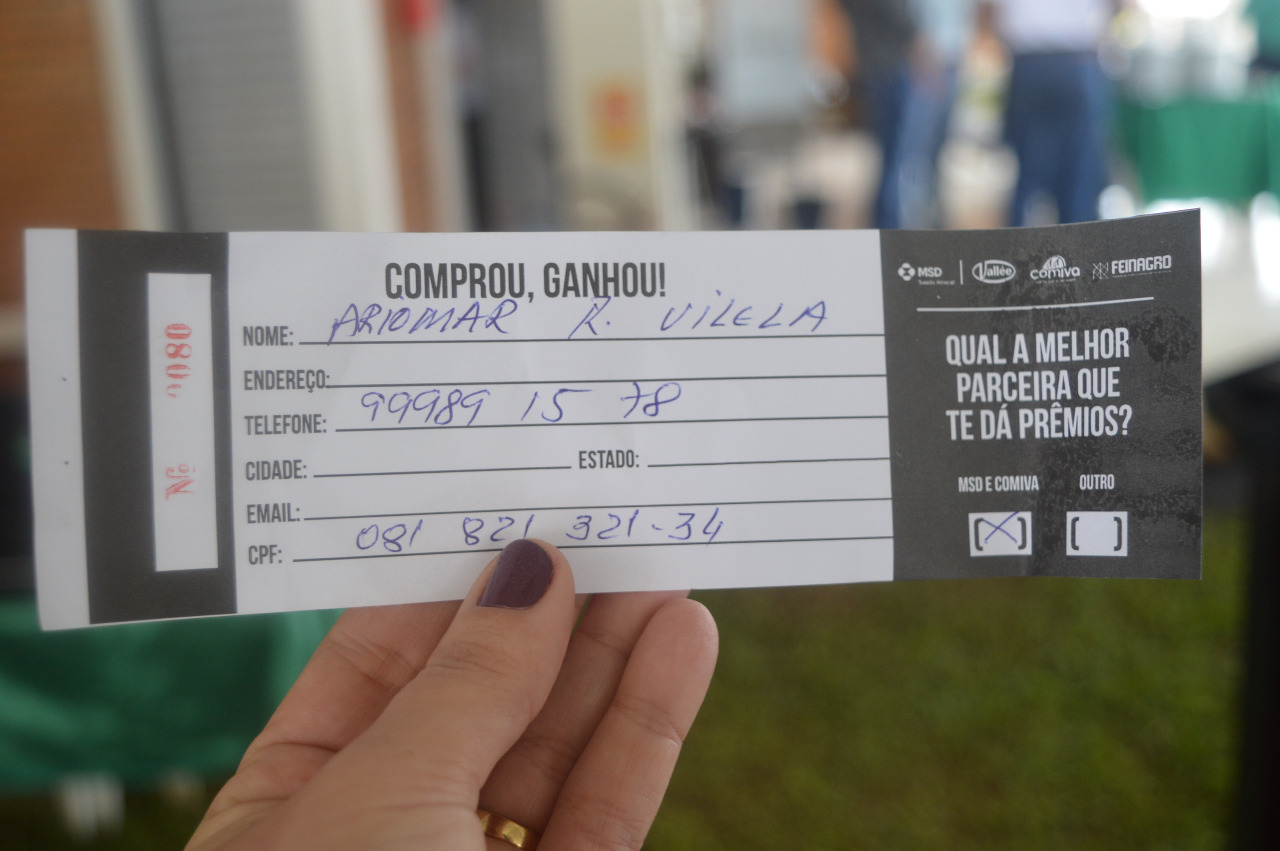 Nº 2080
COMPROU, GANHOU!
NOME: ARIOMAR R. VILELA
ENDEREÇO:
TELEFONE: 99989 15 78
CIDADE: ESTADO:
EMAIL:
CPF: 081 821 321-34
MSD Vallée comiva FEINAGRO
Saúde Animal
QUAL A MELHOR
PARCEIRA QUE
TE DÁ PRÊMIOS?
MSD E COMIVA OUTRO
[X] [ ]